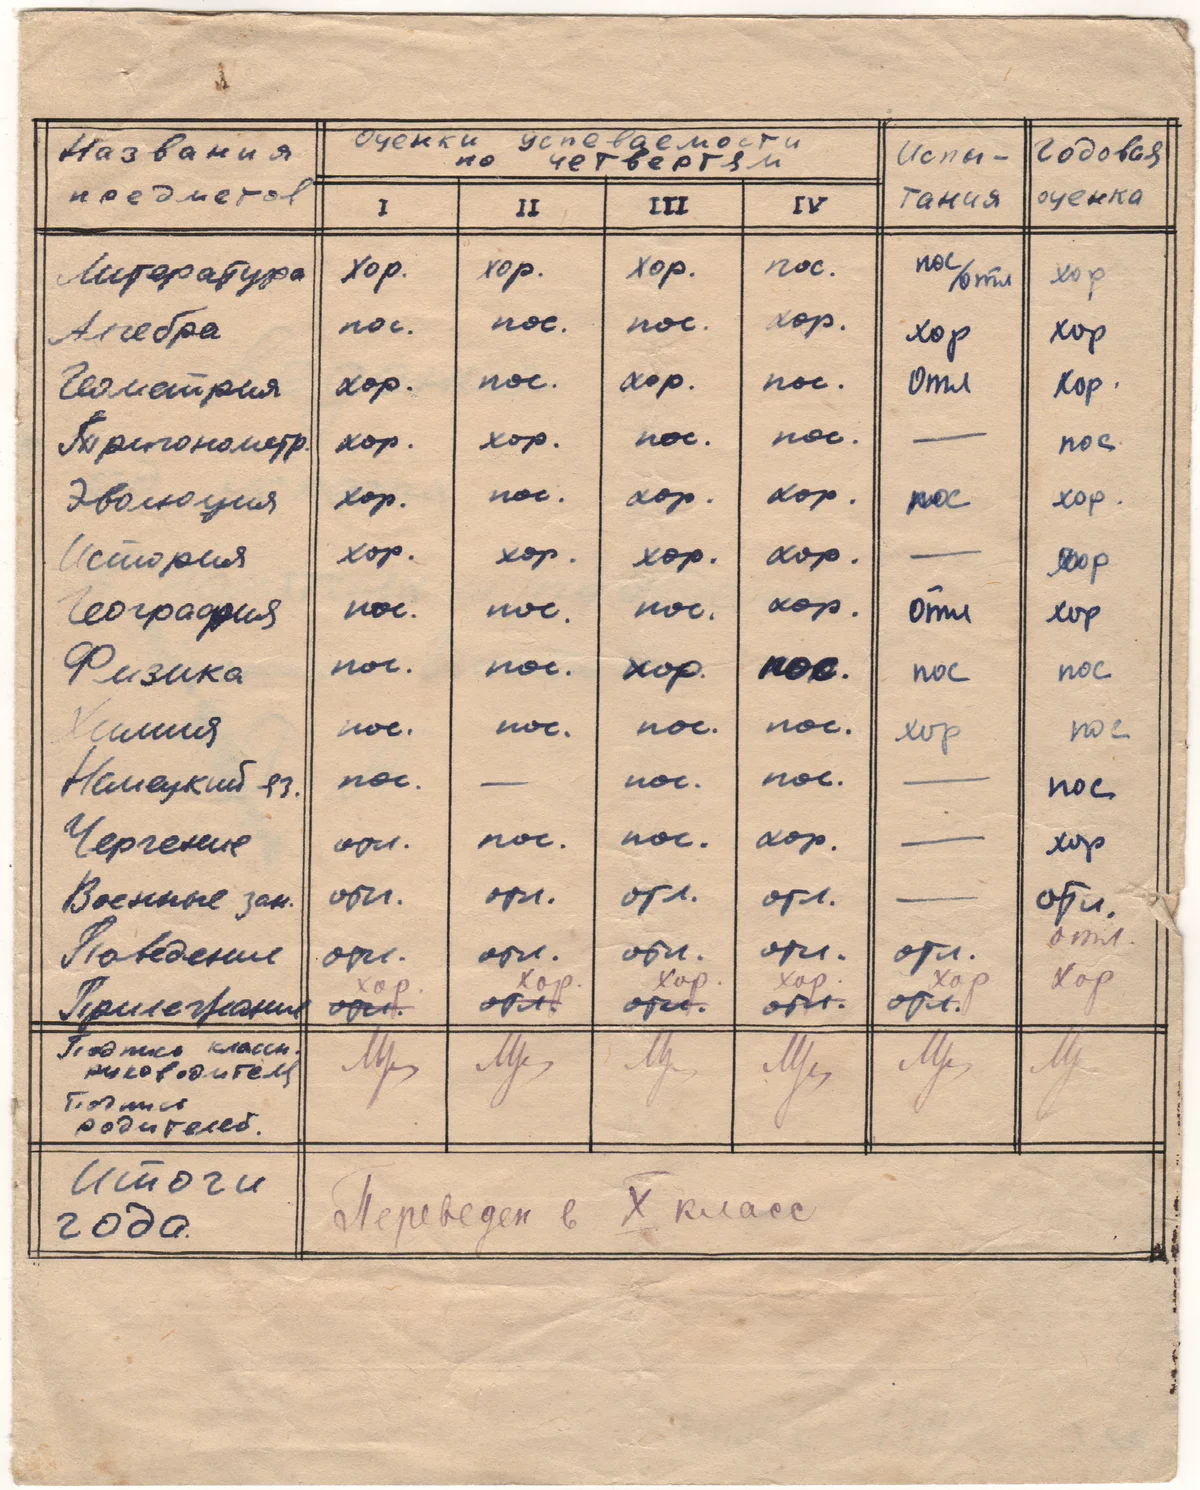 Названия предметов Оценки успеваемости по четвертям Испытания Годовая оценка
I II III IV
Литература хор. хор. хор. пос. пос/отл хор
Алгебра пос. пос. пос. хор. хор хор
Геометрия хор. пос. хор. пос. отл хор.
Тригонометр. хор. хор. пос. пос. — пос
Эволюция хор. пос. хор. хор. пос хор.
История хор. хор. хор. хор. — хор
География пос. пос. пос. хор. отл хор
Физика пос. пос. хор. пос. пос пос
Химия пос. пос. пос. пос. хор пос
Немецкий яз. пос. — пос. пос. — пос
Черчение отл. пос. пос. хор. — хор
Военные зан. отл. отл. отл. отл. — отл.
Поведение отл. отл. отл. отл. отл. отл.
хор. хор. хор. хор. хор хор
Прилежание отл. отл. отл. отл. отл.
Подпись классн.
руководителя
Подпись
родителей.
Итоги
года. Переведен в X класс